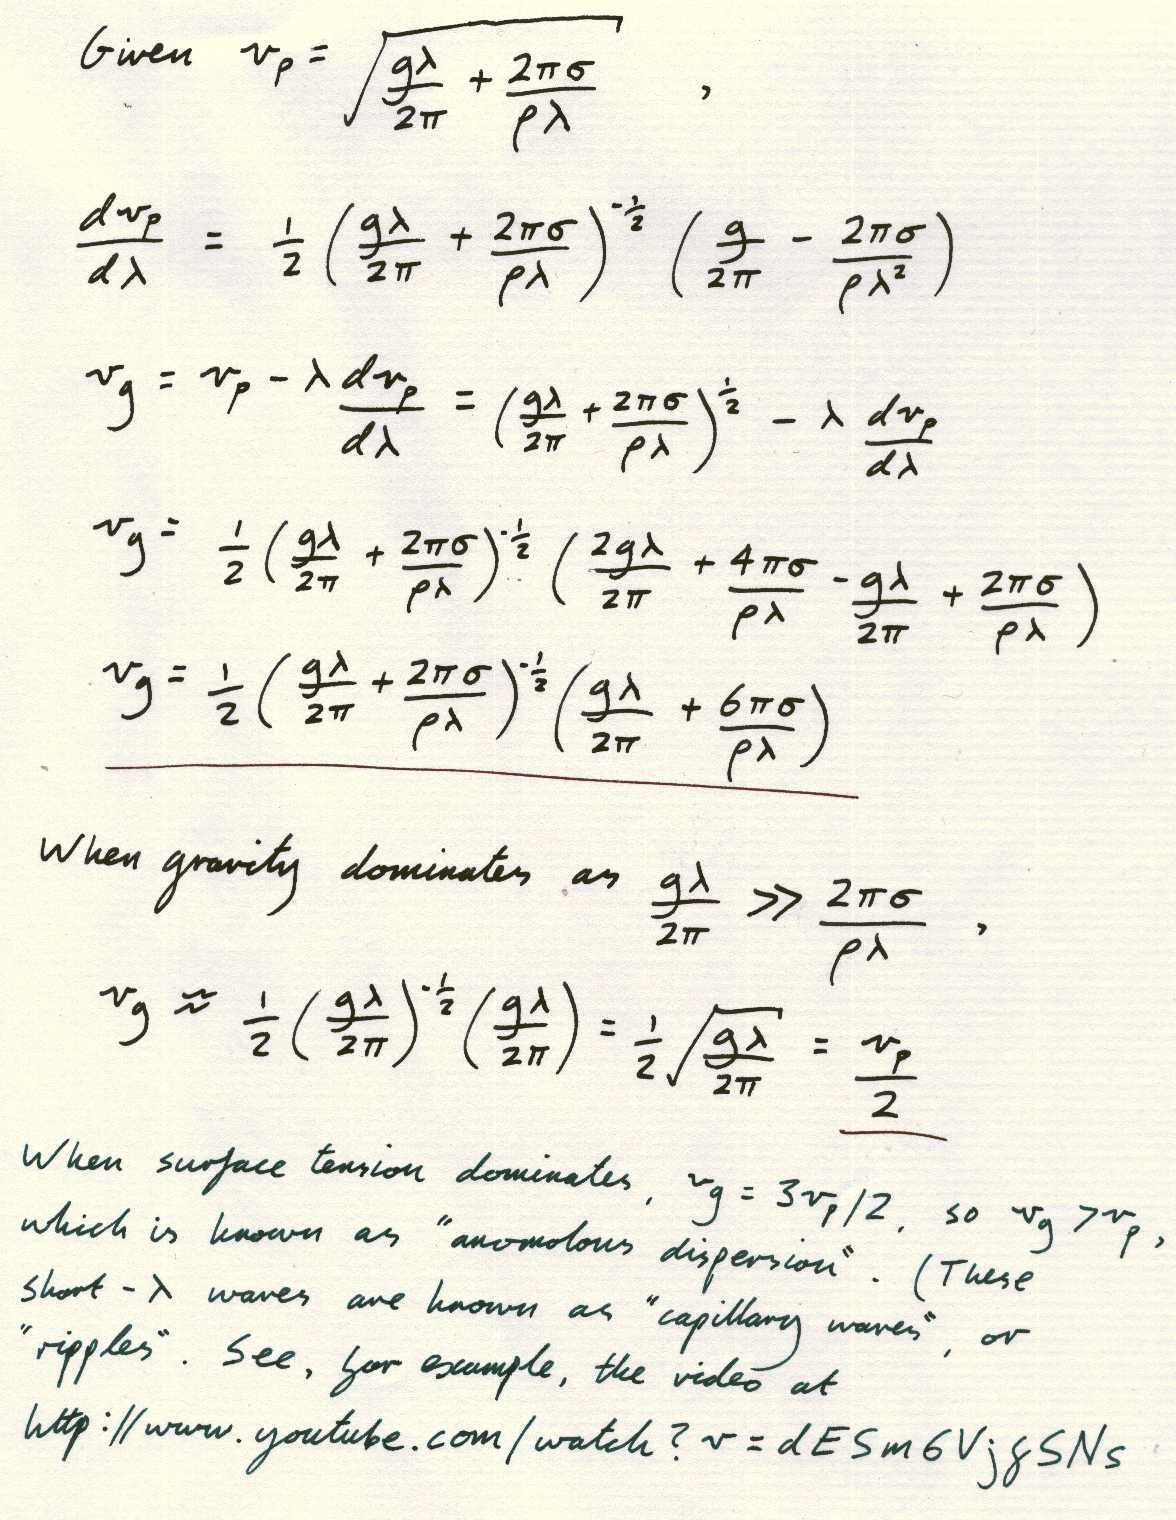 Given v_p = √(gλ/2π + 2πσ/ρλ) ,
dv_p/dλ = 1/2 (gλ/2π + 2πσ/ρλ)^(-1/2) (g/2π - 2πσ/ρλ²)
v_g = v_p - λ dv_p/dλ = (gλ/2π + 2πσ/ρλ)^(1/2) - λ dv_p/dλ
v_g = 1/2 (gλ/2π + 2πσ/ρλ)^(-1/2) (2gλ/2π + 4πσ/ρλ - gλ/2π + 2πσ/ρλ)
v_g = 1/2 (gλ/2π + 2πσ/ρλ)^(-1/2) (gλ/2π + 6πσ/ρλ)
When gravity dominates as gλ/2π >> 2πσ/ρλ ,
v_g ≈ 1/2 (gλ/2π)^(-1/2) (gλ/2π) = 1/2 √(gλ/2π) = v_p/2
When surface tension dominates, v_g = 3v_p/2, so v_g > v_p,
which is known as "anomolous dispersion". (These
short-λ waves are known as "capillary waves", or
"ripples". See, for example, the video at
http://www.youtube.com/watch?v=dESm6VjgSNs